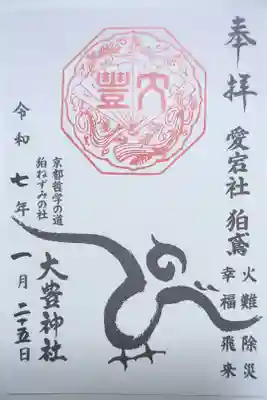 奉拝
愛宕社 狛鳶
火難除災
幸福飛来
大豊
京都哲学の道
狛ねずみの社
大豊神社
令和七年 一月 二十五日